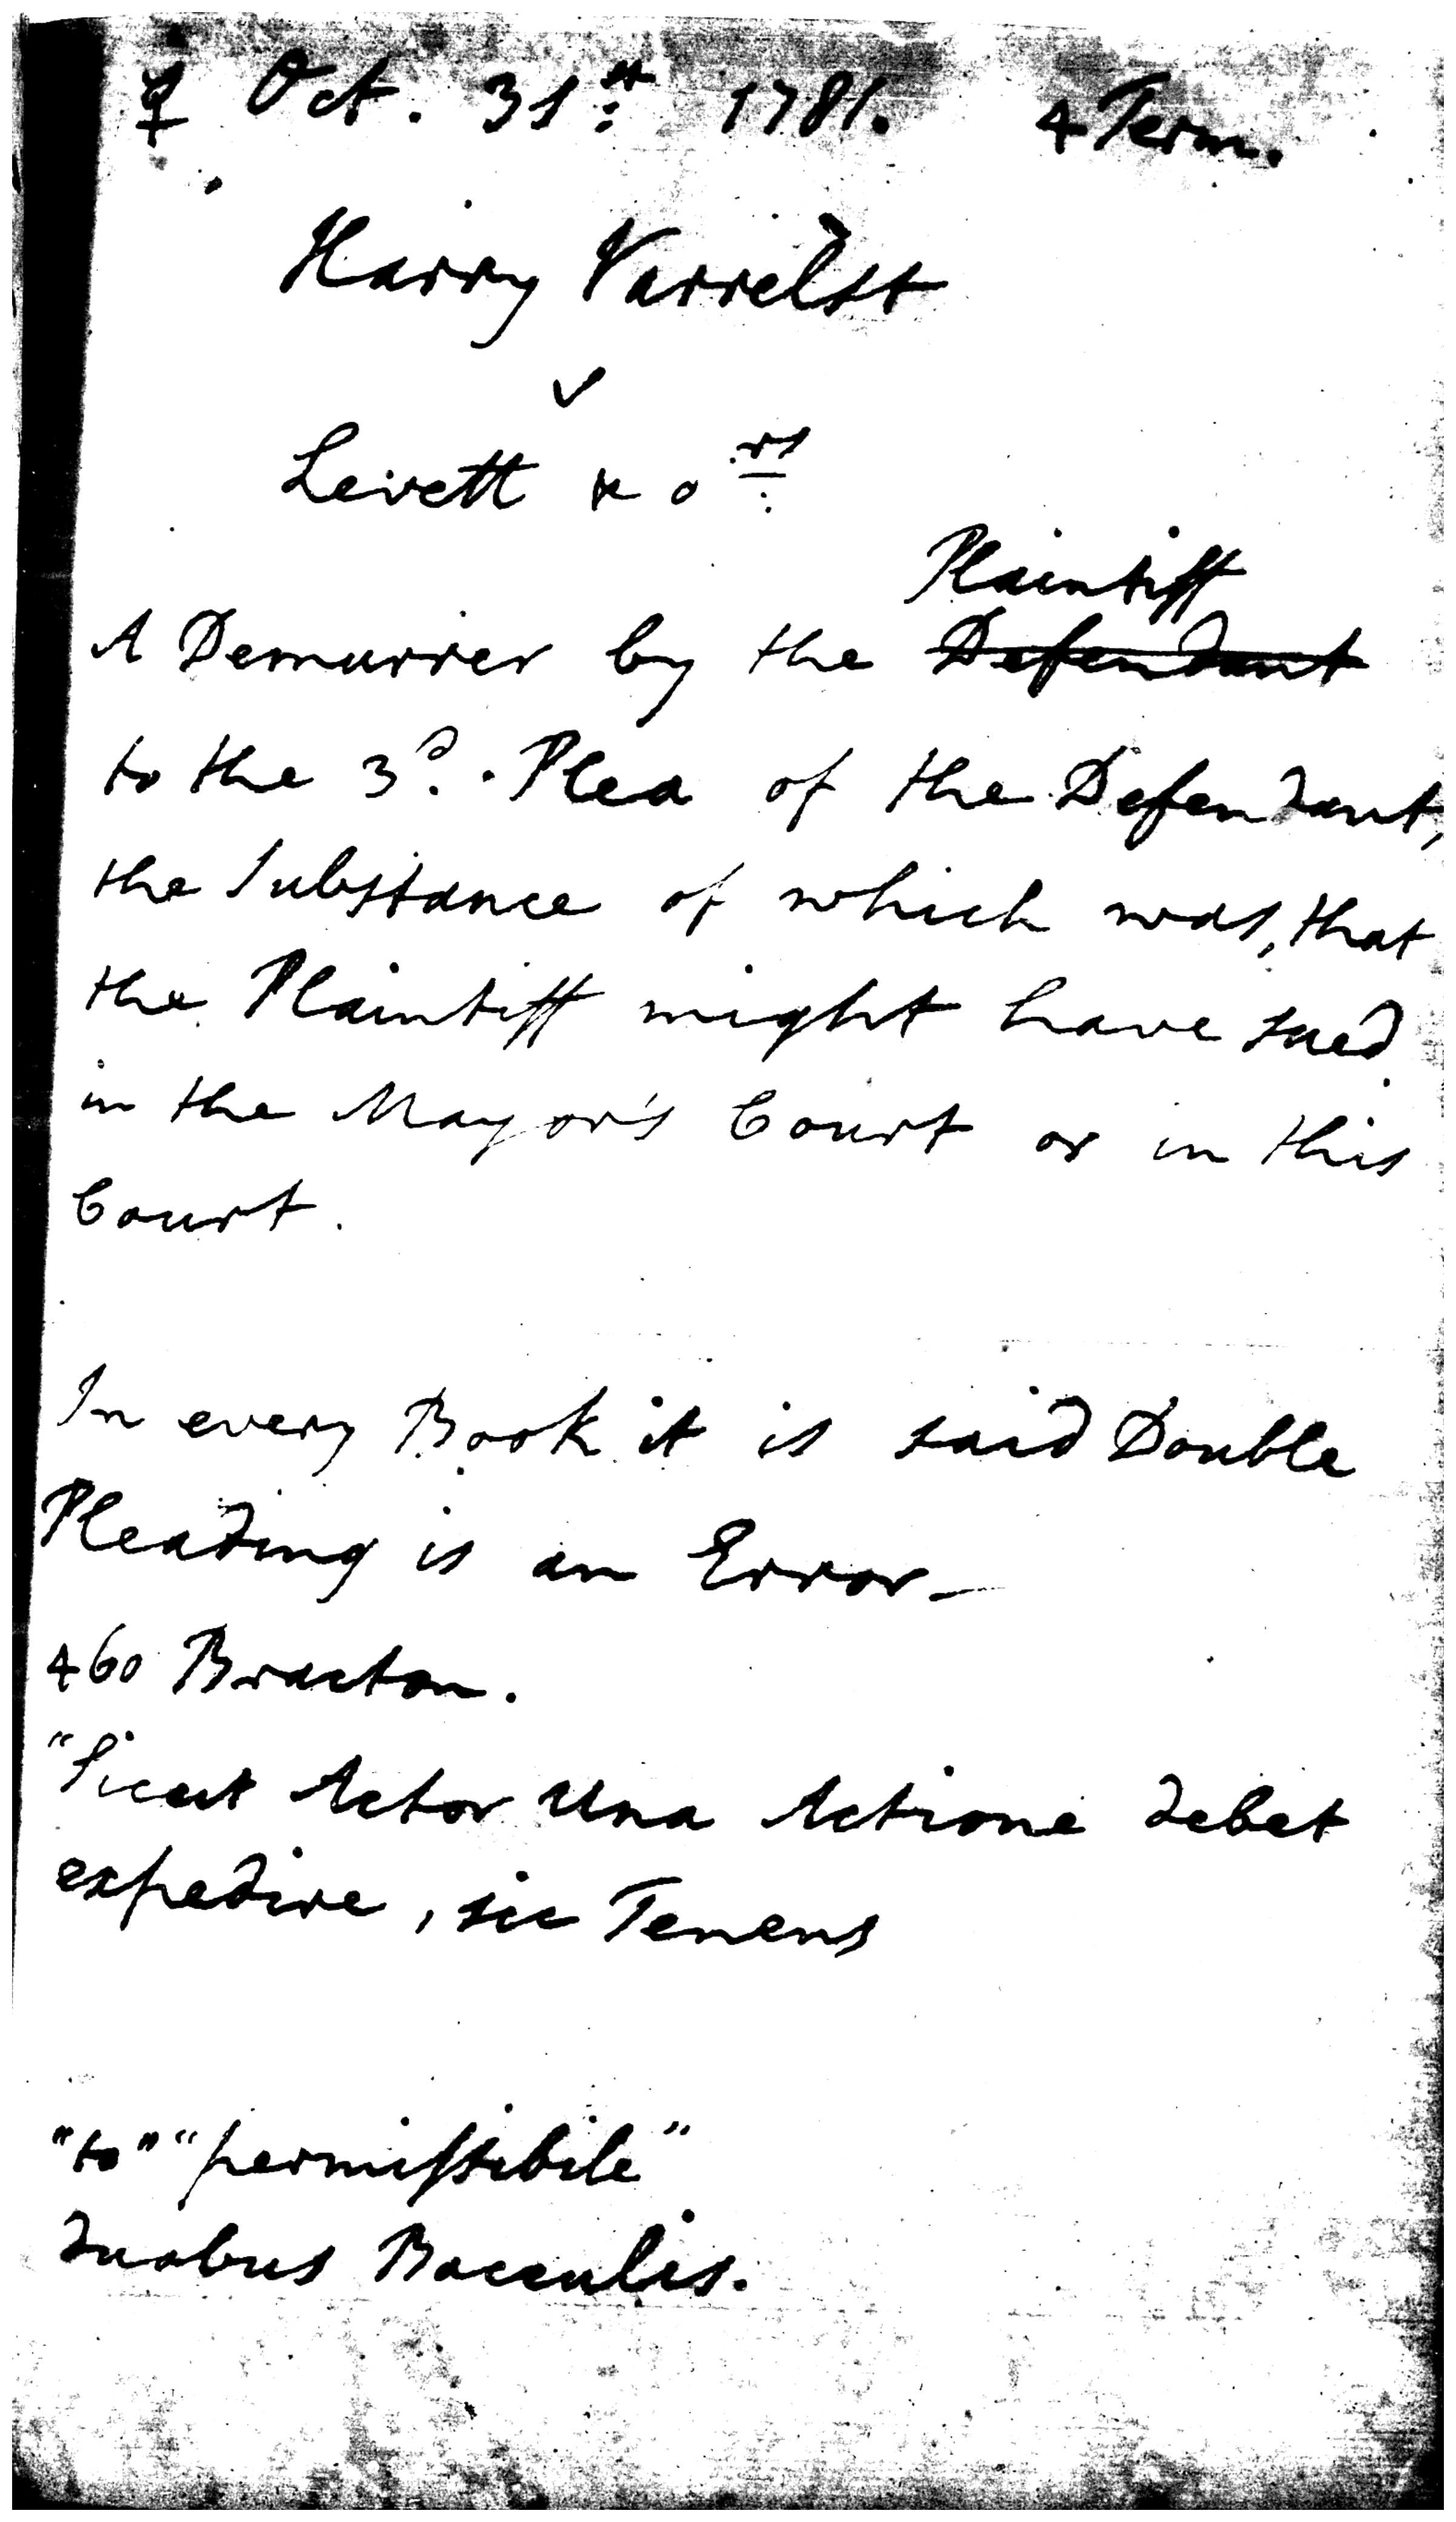 ☿ Oct. 31st 1781. 4 Term.
Harry Varrelst
v
Levett & ors
Plaintiff
A Demurrer by the Defendant
to the 3d. Plea of the Defendant,
the Substance of which was, that
the Plaintiff might have sued
in the Mayor's Court or in this
Court.
In every Book it is said Double
Pleading is an Error_
460 Bracton.
"Sicut Actor Una Actione debet
expedire, sic Tenens
"to" "permissibile"
duobus Bacculis.